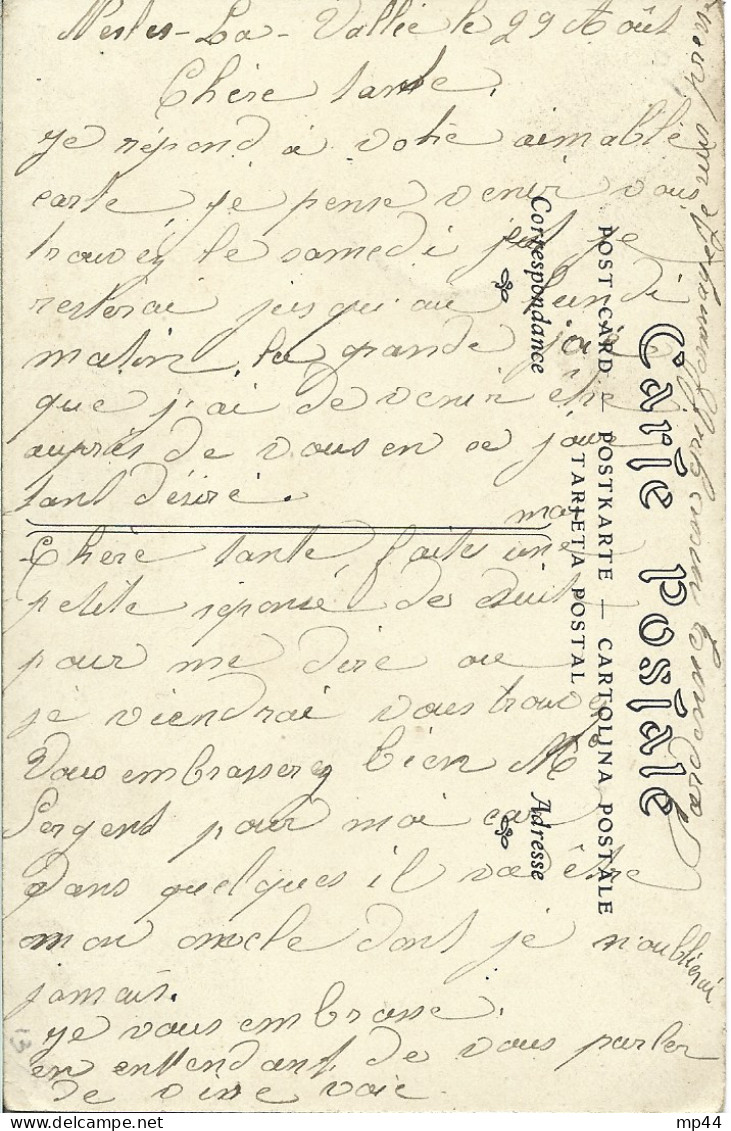 Nesles-La-Vallée le 29 Août
Chère tante,
Je répond à votre aimable
carte, je pense venir vous
trouver le samedi je
resterai jusqu'au lundi
matin, la grande joie
que j'ai de venir être
auprès de vous en ce jour
tant désiré.
ma
Chère tante, faites une
petite réponse de suit
pour me dire ou
je viendrai vous trouve
Vous embrasserez bien Mr
Sergent pour moi car
dans quelques il va être
mon oncle dont je n'oublierai
jamais.
Je vous embrasse.
en entendant de vous parler
de vive voie
Correspondance
Adresse
Carte Postale
POST CARD — POSTKARTE — CARTOLINA POSTALE
TARJETA POSTAL
13
mp44